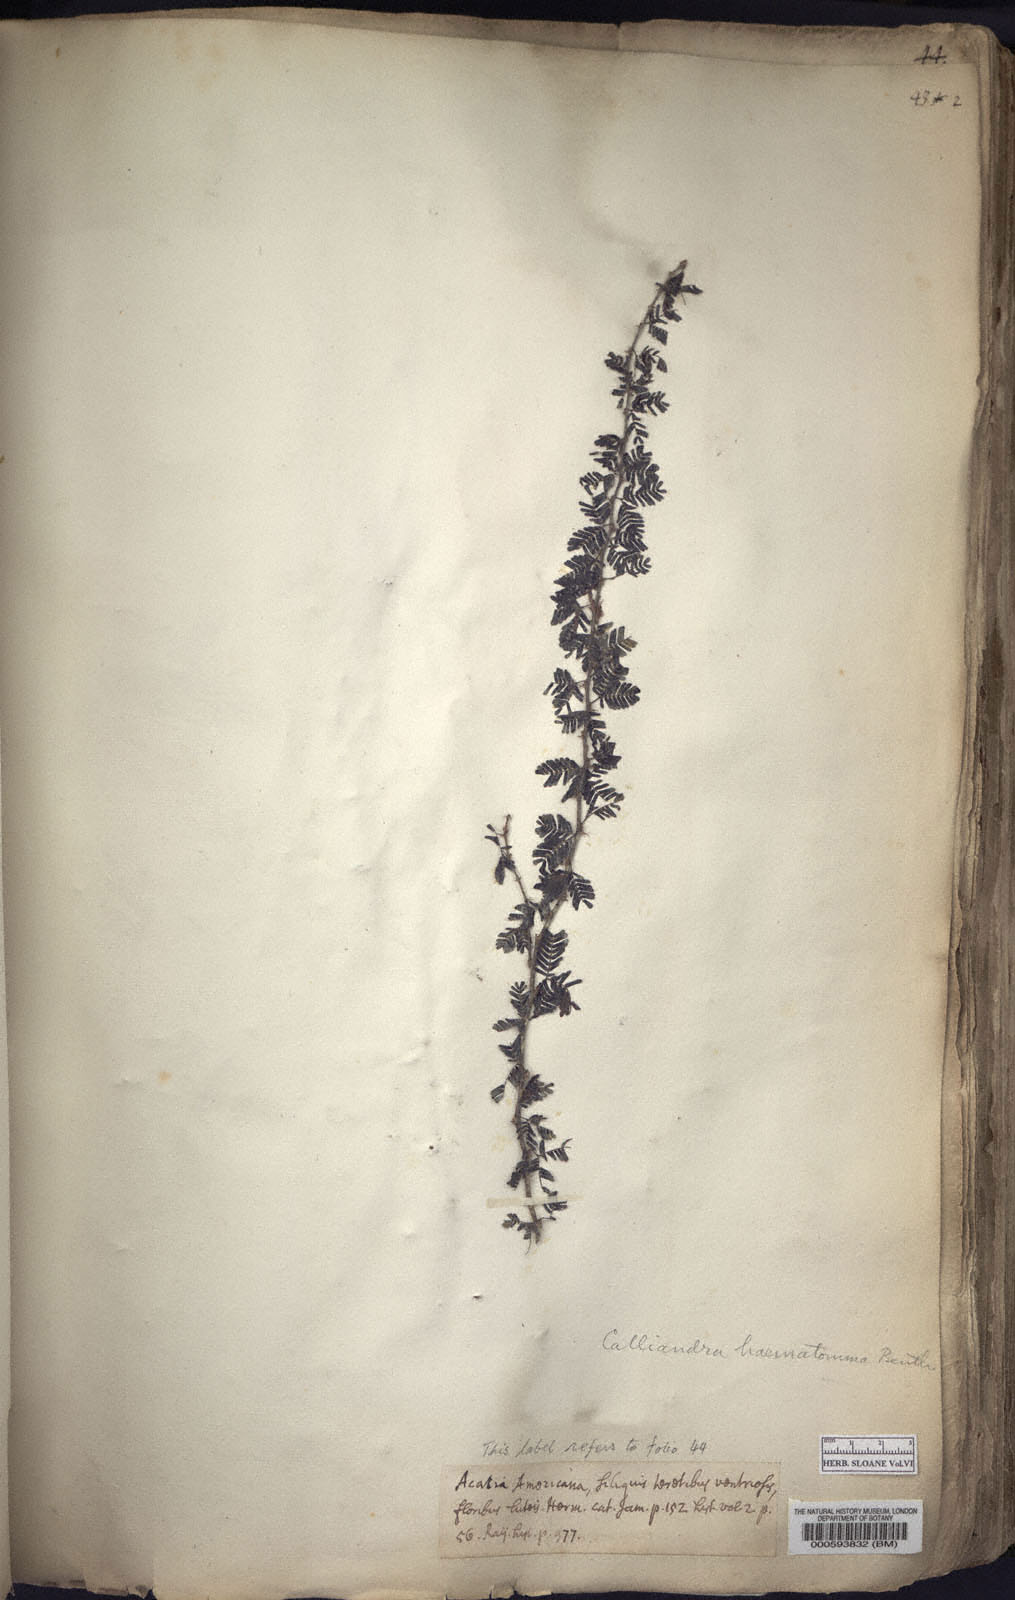 44.
43* 2
Calliandra haematomma Benth.
This label refers to folio 44
mm 1 2 3
HERB. SLOANE Vol.VI
Acacia Americana, siliquis teretibus ventriosis,
floribus luteis. Herm. cat. Jam. p. 152 hist. vol. 2. p.
56. Raij. hist. p. 977.
THE NATURAL HISTORY MUSEUM, LONDON
DEPARTMENT OF BOTANY
000593832 (BM)